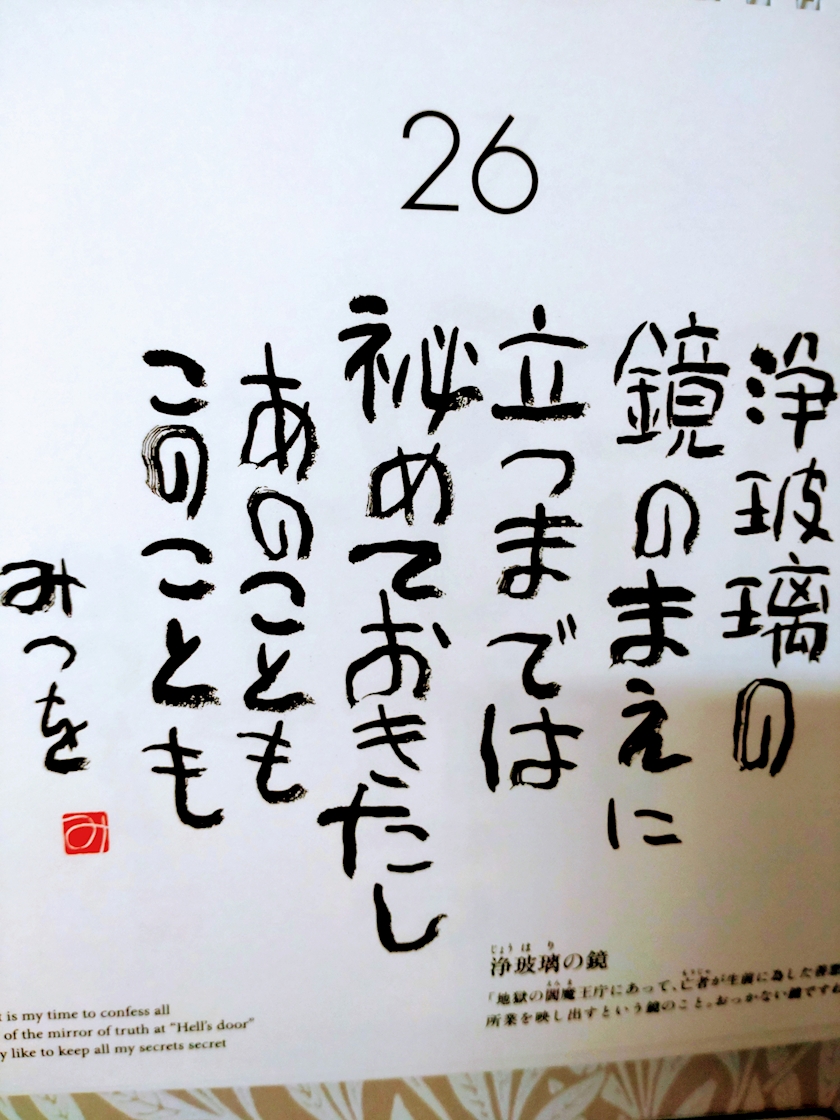 26
浄玻璃の
鏡のまえに
立つまでは
秘めておきたし
あのことも
このことも
みつを
み
浄玻璃の鏡
じょう は り
「地獄の閻魔王庁にあって、亡者が生前に為した善悪
所業を映し出すという鏡のこと。おっかない鏡ですね
t is my time to confess all
of the mirror of truth at “Hell's door”
y like to keep all my secrets secret